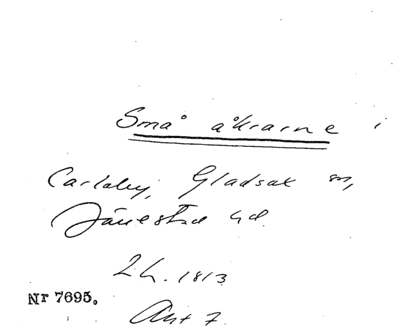 Små åkrarne i
Carlaby, Gladsax sn,
Järrestad hd.
2 h. 1813
Nr 7695.
Akt 7